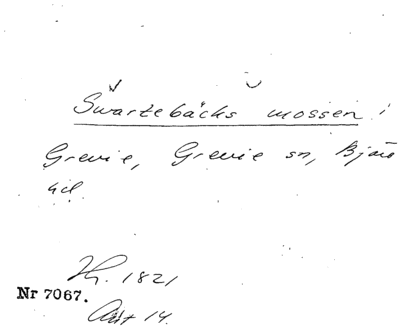 Swartebäcks mossen i
Grevie, Grevie sn, Bjäre
hd
1821
Nr 7067.
Akt 14.